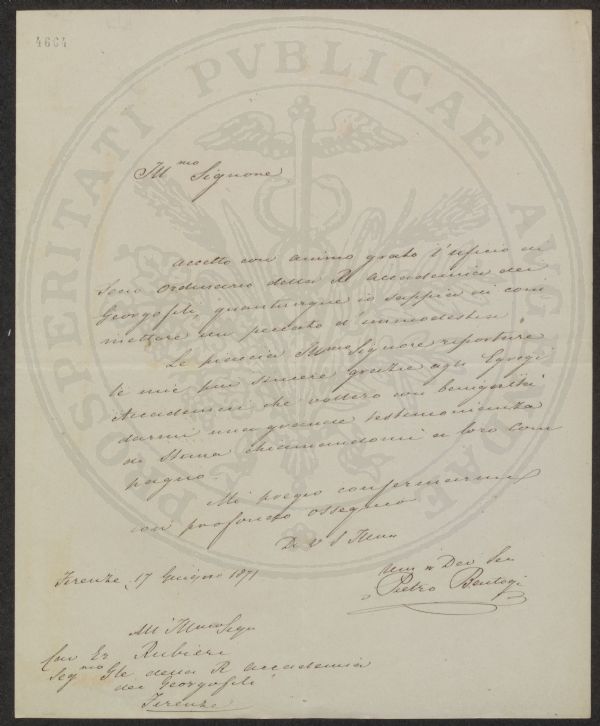 4664
PROSPERITATI PVBLICAE AVGENDAE
Ill.mo Signore
accetto con animo grato l'uficio di
Socio Ordinario della R accademia dei
Georgofili, quantunque io sappia di com
mettere un peccato d'immodestia.
Le piaccia Ill.mo Signore riportare
le mie più sincere grazie agli Egregi
Accademici che vollero con benignità
darmi una grande testimonianza
di Stima chiamandomi a loro com
pagno.
Mi pregio confermarmi
con profondo ossequio
Di V S Illma
Firenze, 17 Giugno 1871
Um Dev Se
Pietro
All' Illmo Sigr
Cav Er Rubieri
Seg Gle della R accademia
dei Georgofili
Firenze